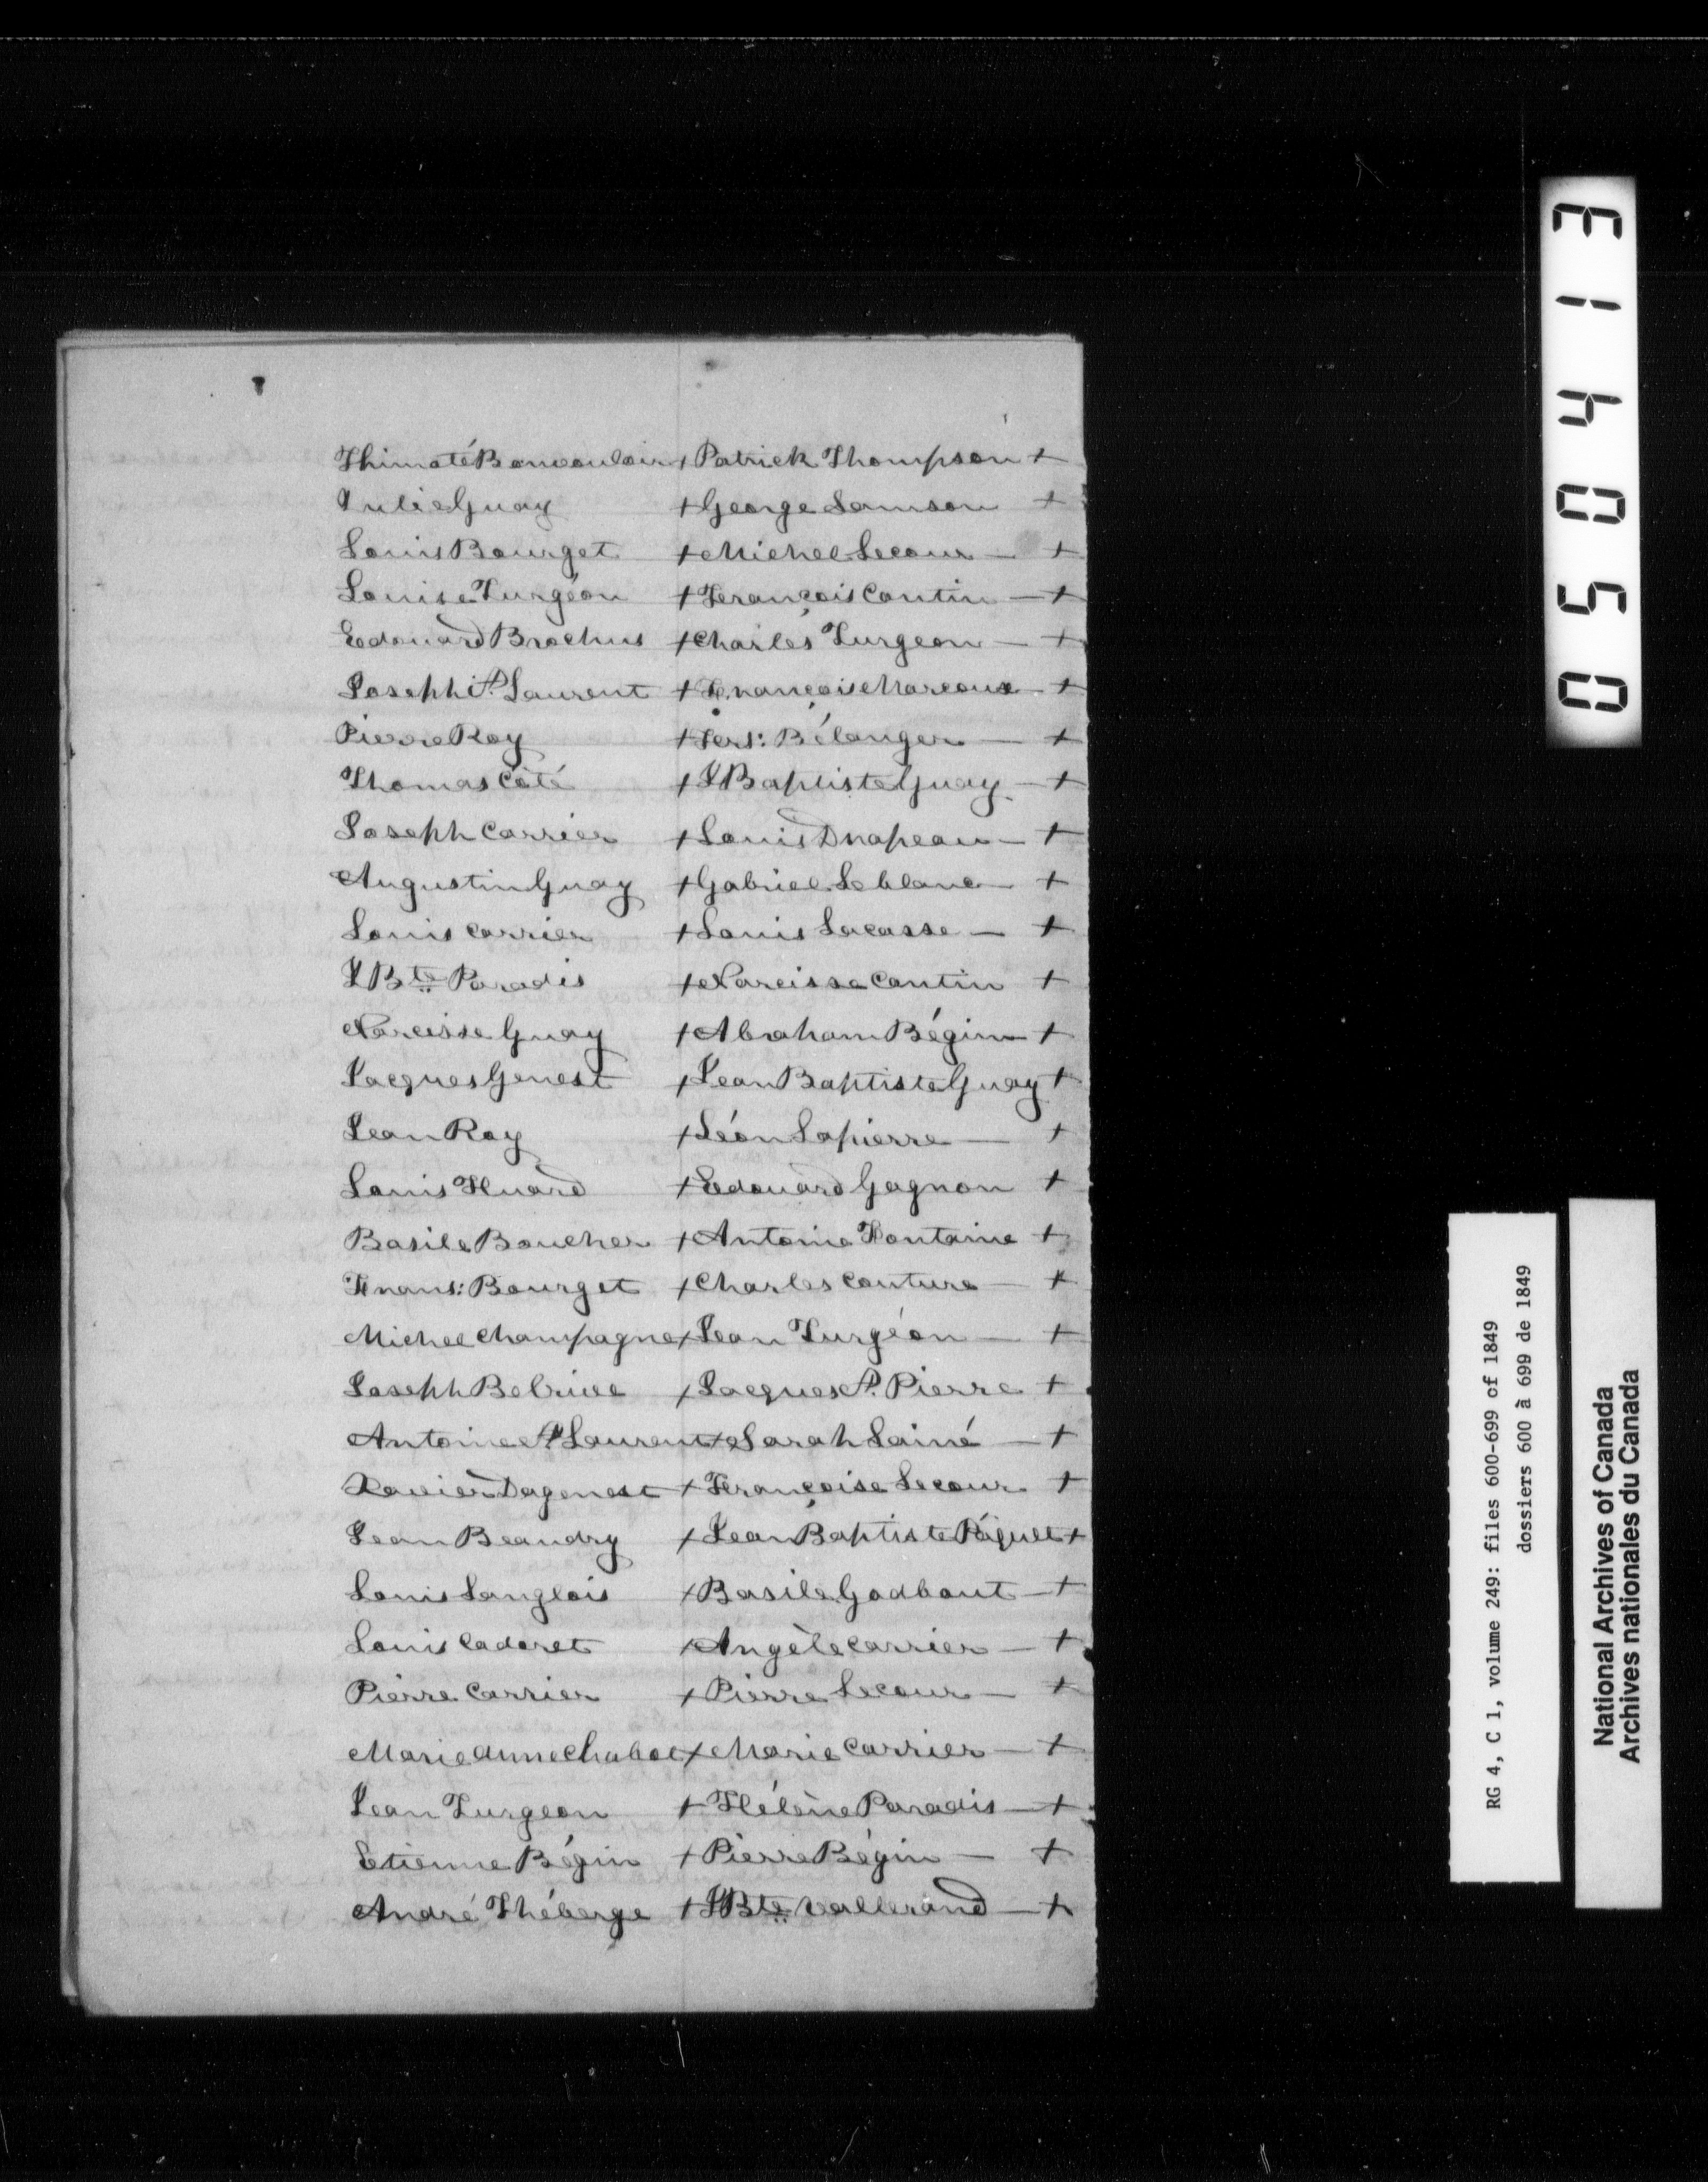 Thimoté Bonvouloir + Patrick Thompson +
Julie Guay + George Samson +
Louis Bourget + Michel Lecour — +
Louise Turgéon + François Cantin — +
Edouard Brochus + Charles Turgeon — +
Joseph St. Laurent + Françoise Marcoux — +
Pierre Roy + Frs: Bélanger — +
Thomas Côté + J Baptiste Guay — +
Joseph Carrier + Louis Drapeau — +
Augustin Guay + Gabriel Leblanc — +
Louis Carrier + Louis Lacasse — +
J Bte Paradis + Narcisse Cantin +
Narcisse Guay + Abraham Bégin — +
Jacques Genest + Jean Baptiste Guay +
Jean Roy + Léon Lapierre — +
Louis Huard + Edouard Gagnon +
Basile Boucher + Antoine Fontaine +
Frans: Bourget + Charles Couture — +
Michel Champagne + Jean Turgéon — +
Joseph Belrive + Jacques St. Pierre +
Antoine St Laurent + Sarah Lainé — +
Xavier Dagenest + Françoise Lecour +
Jean Beaudry + Jean Baptiste Páquet +
Louis Langlois + Basile Godbout — +
Louis Cadoret + Angèle Carrier — +
Pierre Carrier + Pierre Lecour — +
Marie Anne Chabot + Marie Carrier — +
Jean Turgeon + Hélène Paradis — +
Etienne Bégin + Pierre Bégin — +
André Théberge + J Bte Vallerand — +
050413
RG 4, C 1, volume 249: files 600-699 of 1849
dossiers 600 à 699 de 1849
National Archives of Canada
Archives nationales du Canada